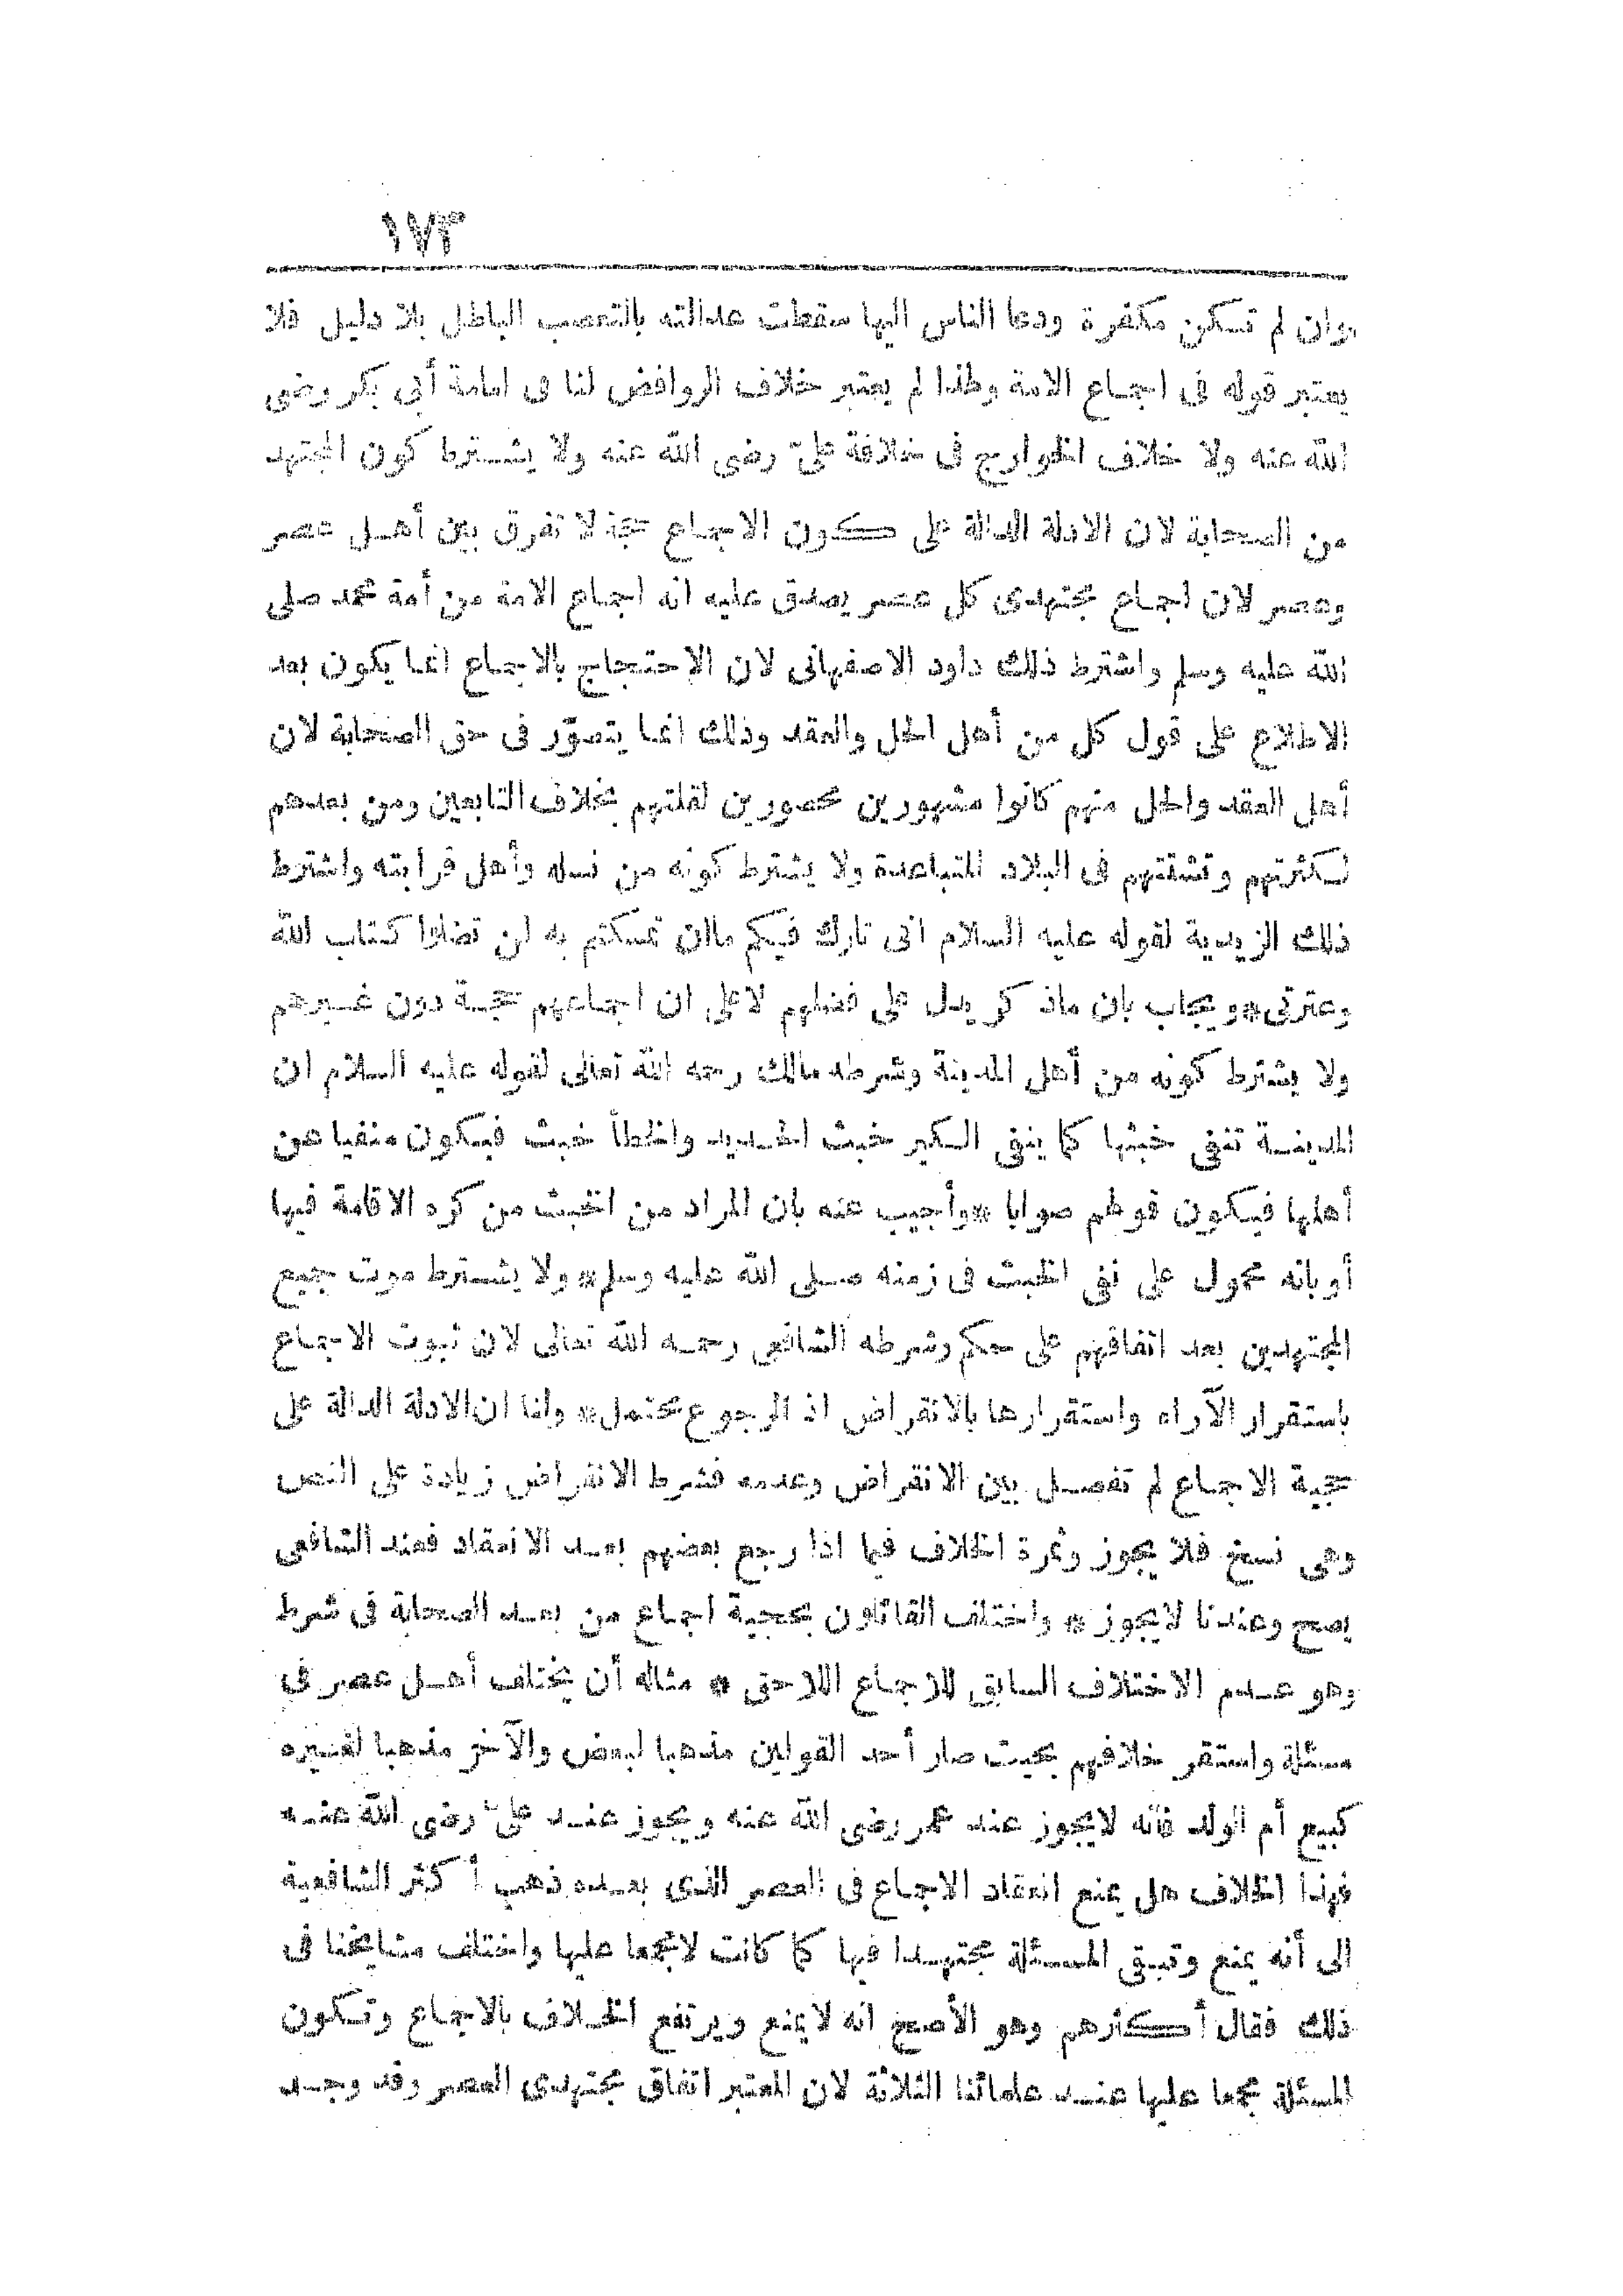 ١٧٣
وان لم تكن مكفرة ودعا الناس اليها سقطت عدالته بالتعصب الباطل بلا دليل فلا
يعتبر قوله فى اجماع الامة ولهذا لم يعتبر خلاف الروافض لنا فى امامة أبى بكر رضى
الله عنه ولا خلاف الخوارج فى خلافة علىّ رضى الله عنه ولا يشترط كون المجتهد
من الصحابة لان الادلة الدالة على كون الاجماع حجة لا تفرق بين أهل عصر
وعصر لان اجماع مجتهدى كل عصر يصدق عليه انه اجماع الامة من أمة محمد صلى
الله عليه وسلم واشترط ذلك داود الاصفهانى لان الاحتجاج بالاجماع انما يكون بعد
الاطلاع على قول كل من أهل الحل والعقد وذلك انما يتصوّر فى حق الصحابة لان
أهل العقد والحل منهم كانوا مشهورين محصورين لقلتهم بخلاف التابعين ومن بعدهم
لكثرتهم وتشتتهم فى البلاد المتباعدة ولا يشترط كونه من نسله وأهل قرابته واشترط
ذلك الزيدية لقوله عليه السلام انى تارك فيكم ماان تمسكتم به لن تضلوا كتاب الله
وعترتى * ويجاب بان ماذكر يدل على فضلهم لا على ان اجماعهم حجة دون غيرهم
ولا يشترط كونه من أهل المدينة وشرطه مالك رحمه الله تعالى لقوله عليه السلام ان
المدينة تنفى خبثها كما ينفى الكير خبث الحديد والخطأ خبث فيكون منفيا عن
أهلها فيكون قولهم صوابا * وأجيب عنه بان المراد من الخبث من كره الاقامة فيها
أو بانه محمول على نفى الخبث فى زمنه صلى الله عليه وسلم * ولا يشترط موت جميع
المجتهدين بعد اتفاقهم على حكم وشرطه الشافعى رحمه الله تعالى لان ثبوت الاجماع
باستقرار الآراء واستقرارها بالانقراض اذ الرجوع محتمل * ولنا ان الادلة الدالة على
حجية الاجماع لم تفصل بين الانقراض وعدمه فشرط الانقراض زيادة على النص
وهى نسخ فلا يجوز وثمرة الخلاف فيما اذا رجع بعضهم بعد الانعقاد فعند الشافعى
يصح وعندنا لايجوز * واختلف القائلون بحجية اجماع من بعد الصحابة فى شرط
وهو عدم الاختلاف السابق للاجماع اللاحق * مثاله أن يختلف أهل عصر فى
مسئلة واستقر خلافهم بحيث صار أحد القولين مذهبا لبعض والآخر مذهبا لغيره
كبيع أم الولد فانه لايجوز عند عمر رضى الله عنه ويجوز عند علىّ رضى الله عنه
فهذا الخلاف هل يمنع انعقاد الاجماع فى العصر الذى بعده ذهب أكثر الشافعية
الى أنه يمنع وتبقى المسئلة مجتهدا فيها كما كانت لامجمعا عليها واختلف مشايخنا فى
ذلك فقال أكثرهم وهو الأصح انه لايمنع ويرتفع الخلاف بالاجماع وتكون
المسئلة مجمعا عليها عند علمائنا الثلاثة لان المعتبر اتفاق مجتهدى العصر وقد وجد